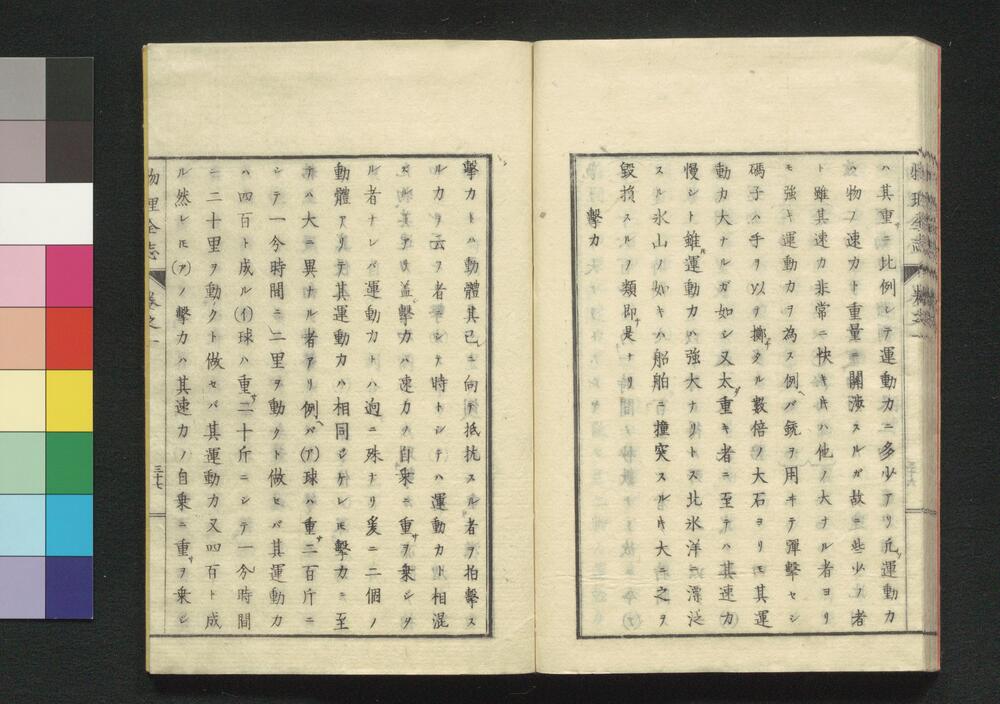 ハ其重サニ比例シテ運動力ニ多少アリ凡ソ運動力
ハ物ノ速力ト重量ニ關渉スルガ故ニ些少ノ者
ト雖其速力非常ニ快キ片ハ他ノ大ナル者ヨリ
モ強キ運動力ヲ為ス例ヘバ銃ヲ用ヰテ彈撃セシ
碼子ハ手ヲ以テ擲ゲタル數倍ノ大石ヨリモ其運
動力大ナルガ如シ又太ダ重キ者ニ至テハ其速力
慢シト雖ドモ運動力ハ強大ナリトス北氷洋ニ漂泛
スル氷山ノ如キハ船舶ニ撞突スル片大ニ之ヲ
毀損スルノ類即チ是ナリ
撃力
撃力トハ動體其己レニ向テ抵抗スル者ヲ拍撃ス
ル力ヲ云フ者ニシテ時トシテハ運動力ト相混
スル事アリ蓋シ撃力ハ速力ノ自乗ニ重サヲ乗シタ
ル者ナレバ運動力トハ逈ニ殊ナリ爰ニ二個ノ
動體アリテ其運動力ハ相同ジケレ𪜈撃力ニ至
テハ大ニ異ナル者アリ例ヘバ(ア)球ハ重サ二百斤ニ
シテ一分時間ニ二里ヲ動クト做セバ其運動力
ハ四百ト成ル(イ)球ハ重サ二十斤ニシテ一分時間
ニ二十里ヲ動クト做セバ其運動力又四百ト成
ル然レ𪜈(ア)ノ撃力ハ其速力ノ自乗ニ重サヲ乗シ
物理全志
三十七